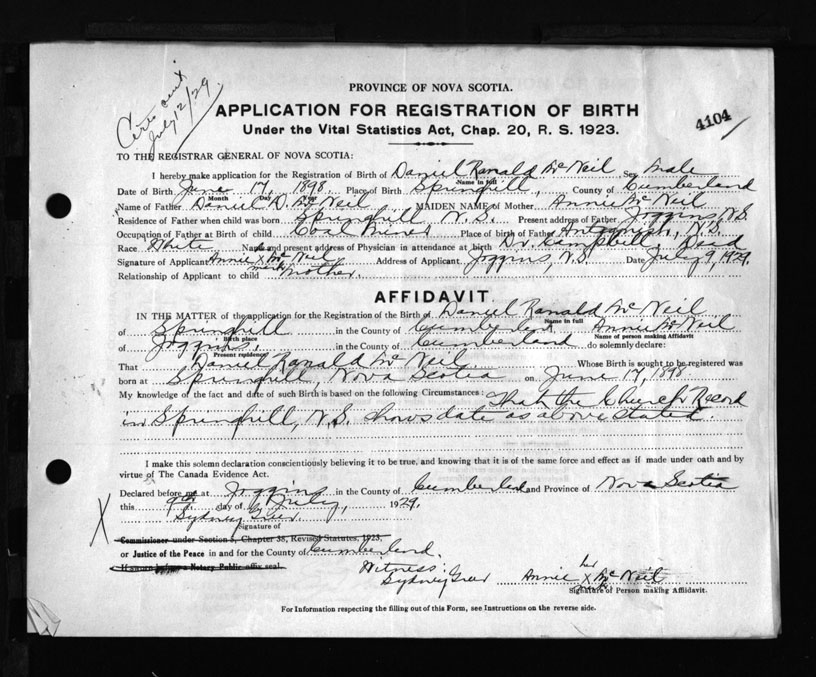 Certe sent
July 12/29.
PROVINCE OF NOVA SCOTIA.
APPLICATION FOR REGISTRATION OF BIRTH
4104
Under the Vital Statistics Act, Chap. 20, R. S. 1923.
TO THE REGISTRAR GENERAL OF NOVA SCOTIA:
I hereby make application for the Registration of Birth of Daniel Ranald McNeil, Sex Male
Name in full
Date of Birth June 17, 1898. Place of Birth Springhill, County of Cumberland
Month Day Year
Name of Father Daniel D. McNeil MAIDEN NAME of Mother Annie McNeil
Residence of Father when child was born Springhill N.S. Present address of Father Joggins, N.S.
Occupation of Father at Birth of child Coal Miner Place of birth of Father Antigonish, N.S.
Race White Name and present address of Physician in attendance at birth Dr. Campbell, Dead
Signature of Applicant Annie her X mark McNeil Address of Applicant. Joggins, N.S. Date July 9, 1929.
Relationship of Applicant to child Mother.
AFFIDAVIT
IN THE MATTER of the application for the Registration of the Birth of Daniel Ranald McNeil
Name in full
of Springhill in the County of Cumberland, Annie McNeil
Birth place Name of person making Affidavit
of Joggins, in the County of Cumberland do solemnly declare:
Present residence
That Daniel Ranald McNeil Whose Birth is sought to be registered was
born at Springhill, Nova Scotia on June 17, 1898
My knowledge of the fact and date of such Birth is based on the following Circumstances: That the Church Record
in Springhill, N.S. shows date as above stated.
I make this solemn declaration conscientiously believing it to be true, and knowing that it is of the same force and effect as if made under oath and by
virtue of The Canada Evidence Act.
Declared before me at Joggins in the County of Cumberland and Province of Nova Scotia
this 9th day of July, 1929.
Sydney
Signature of
X
Commissioner under Section 3, Chapter 38, Revised Statutes, 1923.
or Justice of the Peace in and for the County of Cumberland.
If sworn before a Notary Public affix seal.
Witness:
Sydney Annie her X mark McNeil
Signature of Person making Affidavit.
For Information respecting the filling out of this Form, see Instructions on the reverse side.